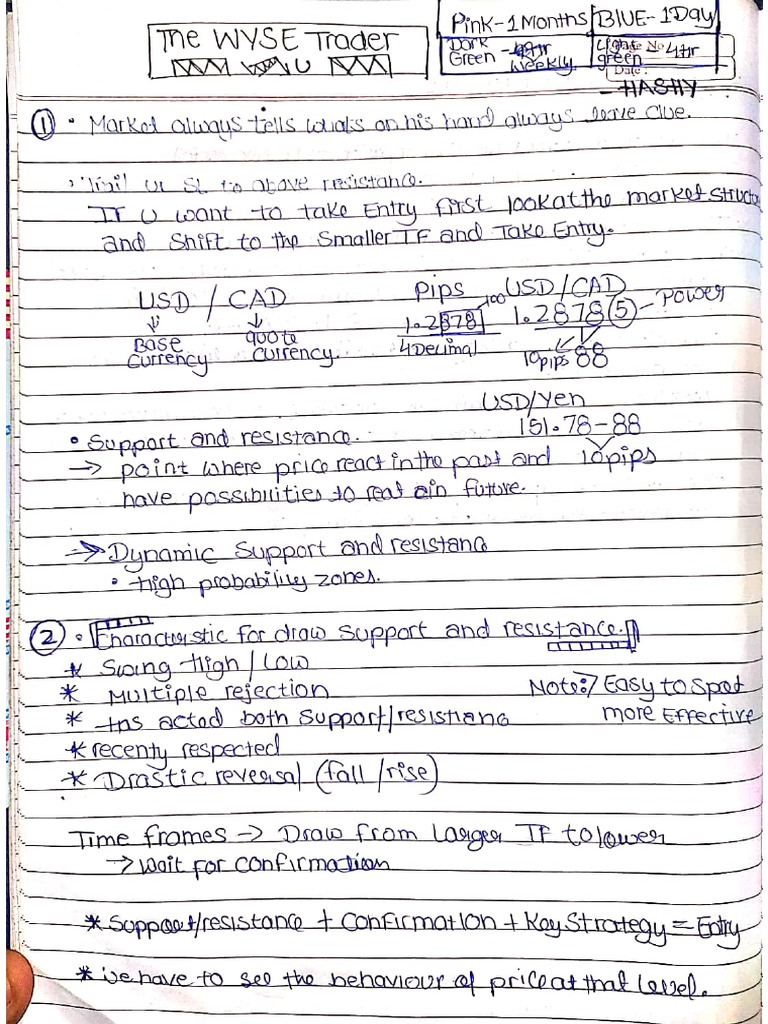 The WYSE Trader
Pink-1Months BIUE-1Day
Dark Green - weekly Light green 4Hr
Date No
Date:
- HASHY
① • Market always tells whats on his hand always leave clue.
SL to above resistance.
If U want to take Entry first look at the market structu
and Shift to the Smaller TF and Take Entry.
USD / CAD
Base currency
quote currency
Pips
1.2878 100
4Decimal
USD/CAD
1.2878⑤ - Power
10pips 88
USD/Yen
151.78-88
10pips
• Support and resistance.
→ point where price react in the past and
have possibilities to reat ain future.
→ Dynamic Support and resistanc
• High probability zones.
② • Characteristic for draw support and resistance.
* Swing High / Low
* Multiple rejection
* Has acted both support/resistianc
* recenty respected
* Drastic reversal (fall/rise)
Note:→ Easy to Spot
more Effective
Time frames → Draw from Larger TF to lower
→ Wait for confirmation
* Suppoet/resistance + Confirmation + Key Strategy = Entry
* We have to see the behaviour of price at that level.